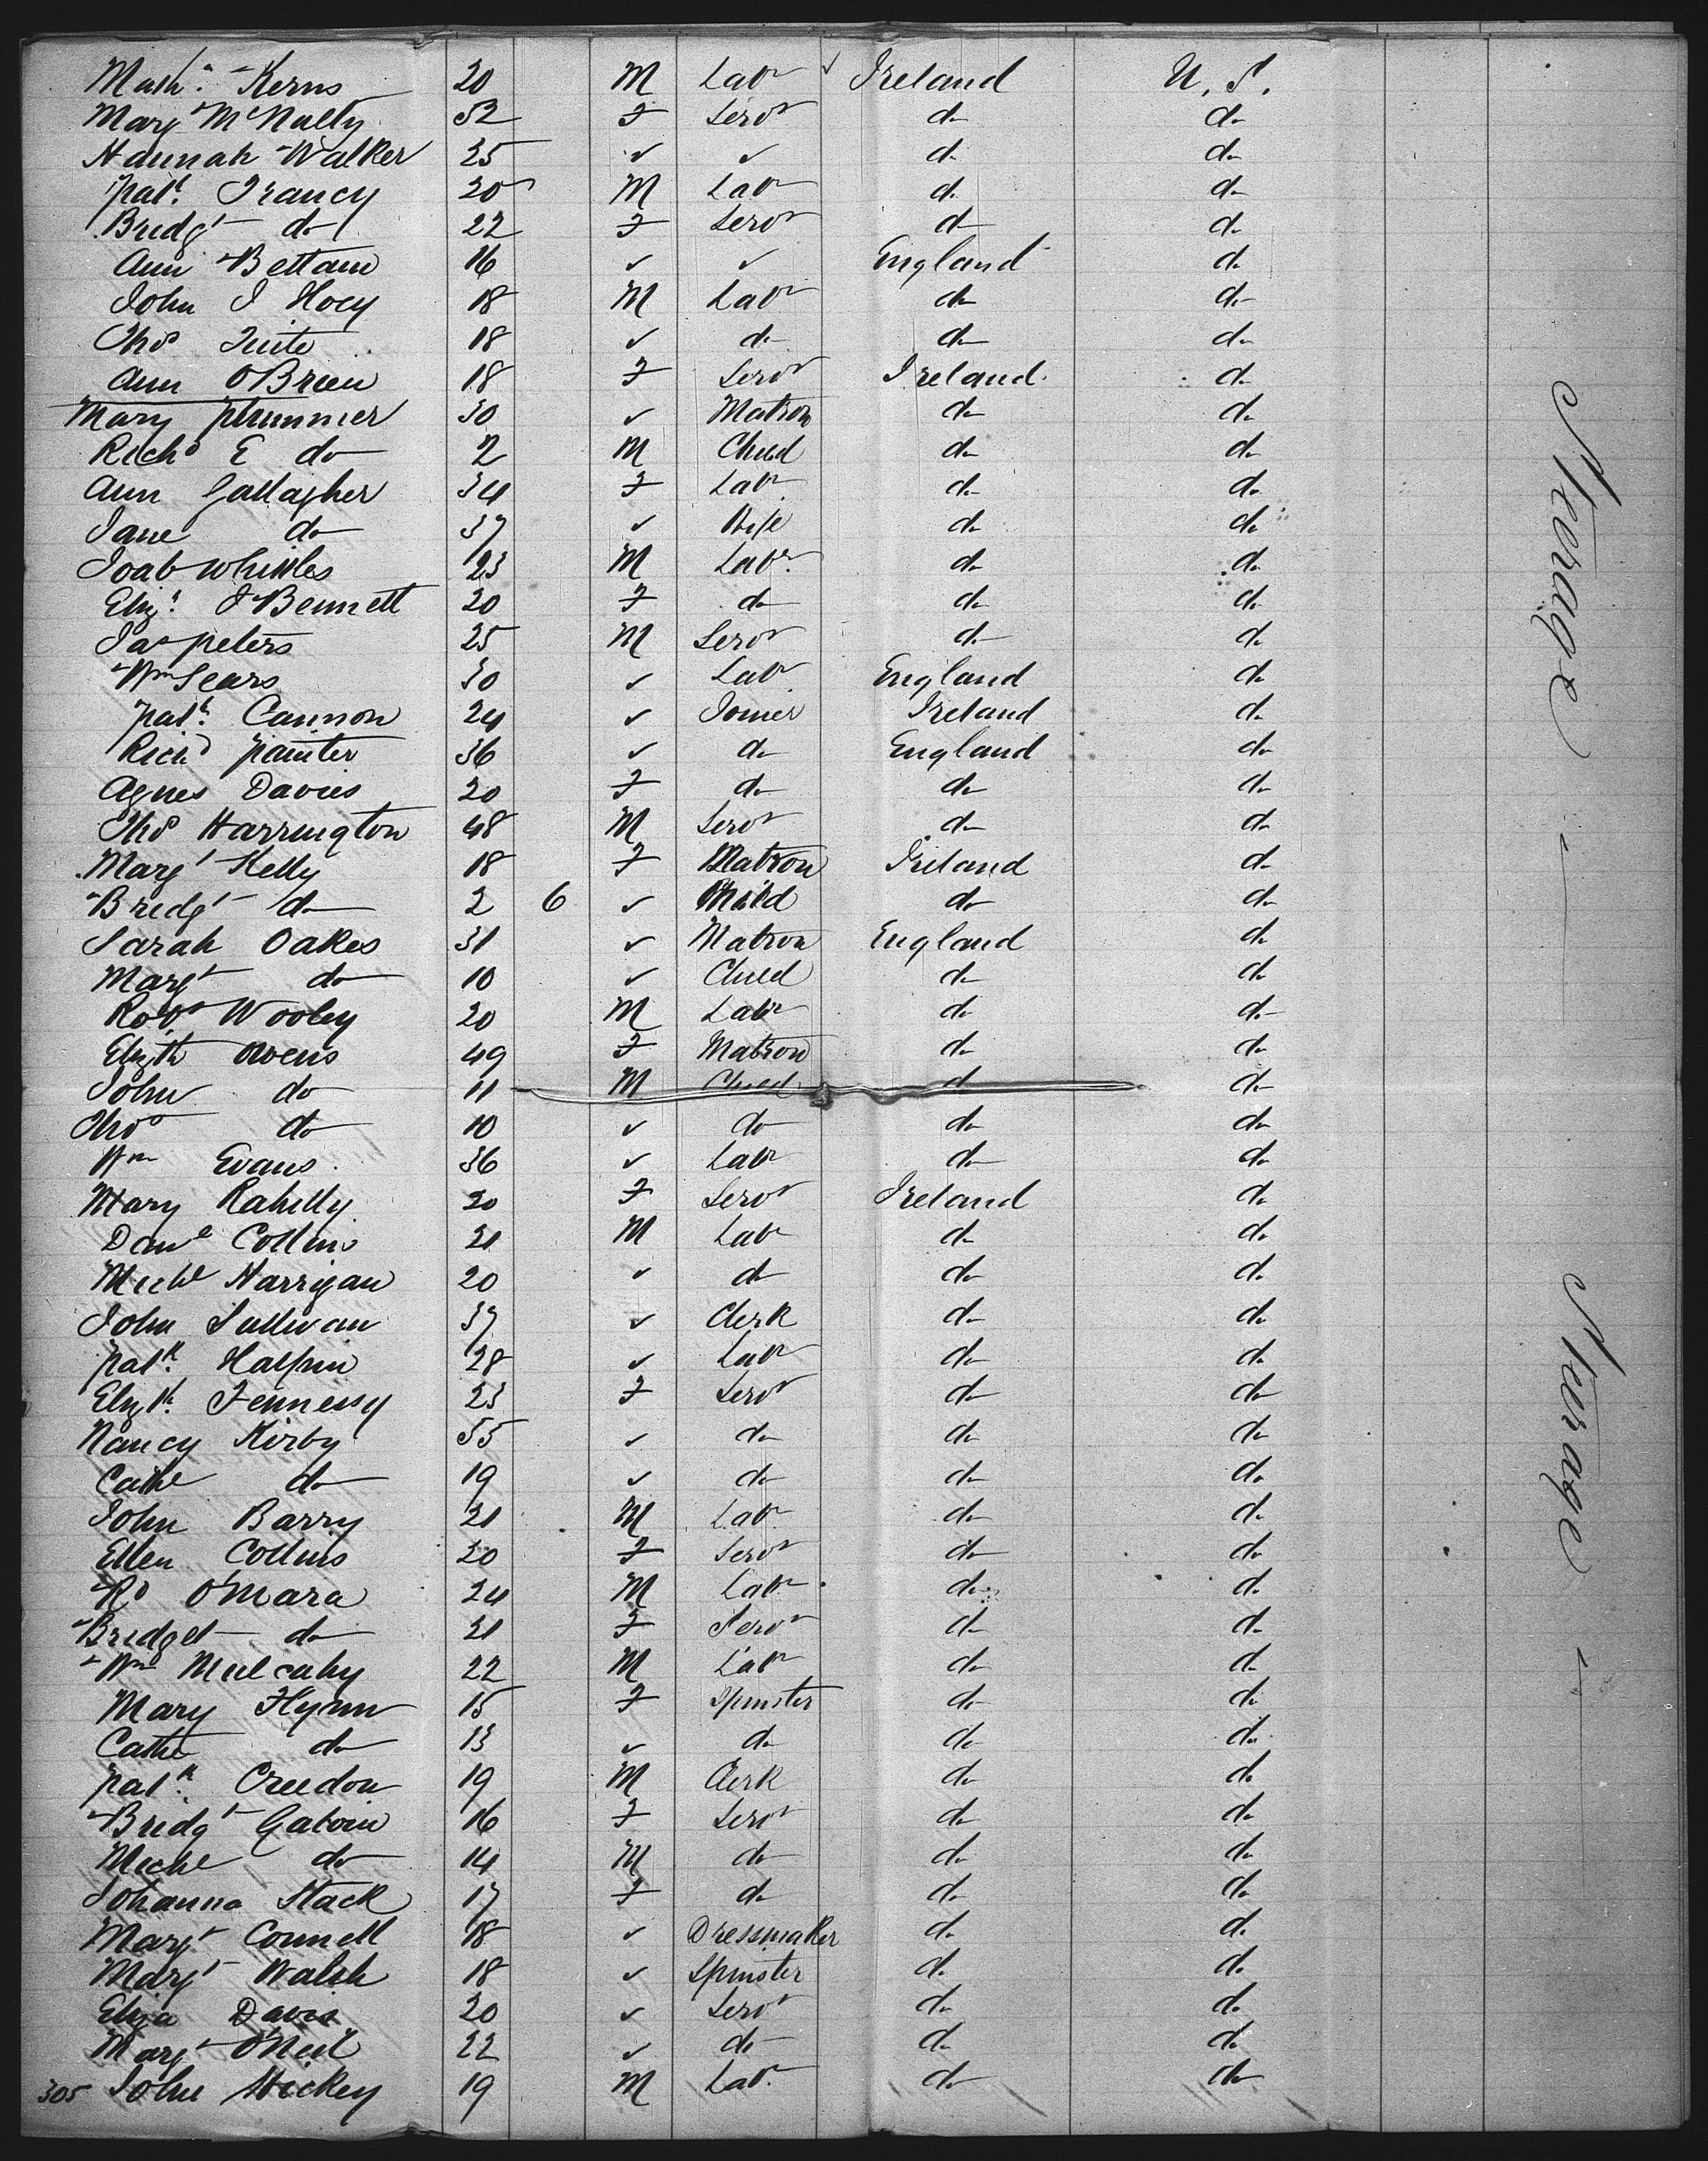 Math. Kerns 20 M Labr ✓ Ireland U. S.
Marg McNally 52 F Servt do do
Hannah Walker 25 ✓ ✓ do do
Patk. Francy 20 M Labr do do
Bridgt do 22 F Servt do do
Ann Bettam 16 ✓ ✓ England do
John J Hoey 18 M Labr do do
Thos Tuite 18 ✓ do do do
Ann OBrien 18 F Servt Ireland do
Mary Plummer 30 ✓ Matron do do
Richd E do 2 M Child do do
Ann Gallagher 34 F Labr do do
Jane do 37 ✓ Wife do do
Joab Whittles 23 M Labr. do do
Eliza. J Bennett 20 F do do do
Jas Peters 25 M Servt do do
Wm Sears 30 ✓ Labr England do
Patk. Cannon 24 ✓ Joiner Ireland do
Richd Painter 36 ✓ do England do
Agnes Davies 20 F do do do
Thos Harrington 48 M Servt do do
Margt Kelly 18 F Matron Ireland do
Bridgt do 2 6 ✓ Child do do
Sarah Oakes 31 ✓ Matron England do
Margt do 10 ✓ Child do do
Robt Wooley 20 M Labr do do
Elizth Owens 49 F Matron do do
John do 11 M Child do do
Thos do 10 ✓ do do do
Wm Evans 36 ✓ Labr do do
Mary Rahilly 20 F Servt Ireland do
Danl Collins 21 M Labr do do
Michl Harrigan 20 ✓ do do do
John Sullivan 37 ✓ Clerk do do
Patk. Halpin 28 ✓ Labr do do
Elizth. Fennessy 23 F Servt do do
Nancy Kirby 55 ✓ do do do
Cathe do 19 ✓ do do do
John Barry 21 M Labr do do
Ellen Collins 20 F Servt do do
Rd O'Mara 24 M Labr do do
Bridget do 21 F Servt do do
Wm Mulcahy 22 M Labr do do
Mary Flynn 15 F Spinster do do
Cathe do 13 ✓ do do do
Patk. Creedon 19 M Clerk do do
Bridgt Galvin 16 F Servt do do
Michl do 14 M do do do
Johanna Stack 17 F do do do
Margt Connell 18 ✓ Dressmaker do do
Margt Walsh 18 ✓ Spinster do do
Eliza Davis 20 ✓ Servt do do
Margt O'Neil 22 ✓ do do do
305 John Hickey 19 M Labr. do do
Steerage
Steerage